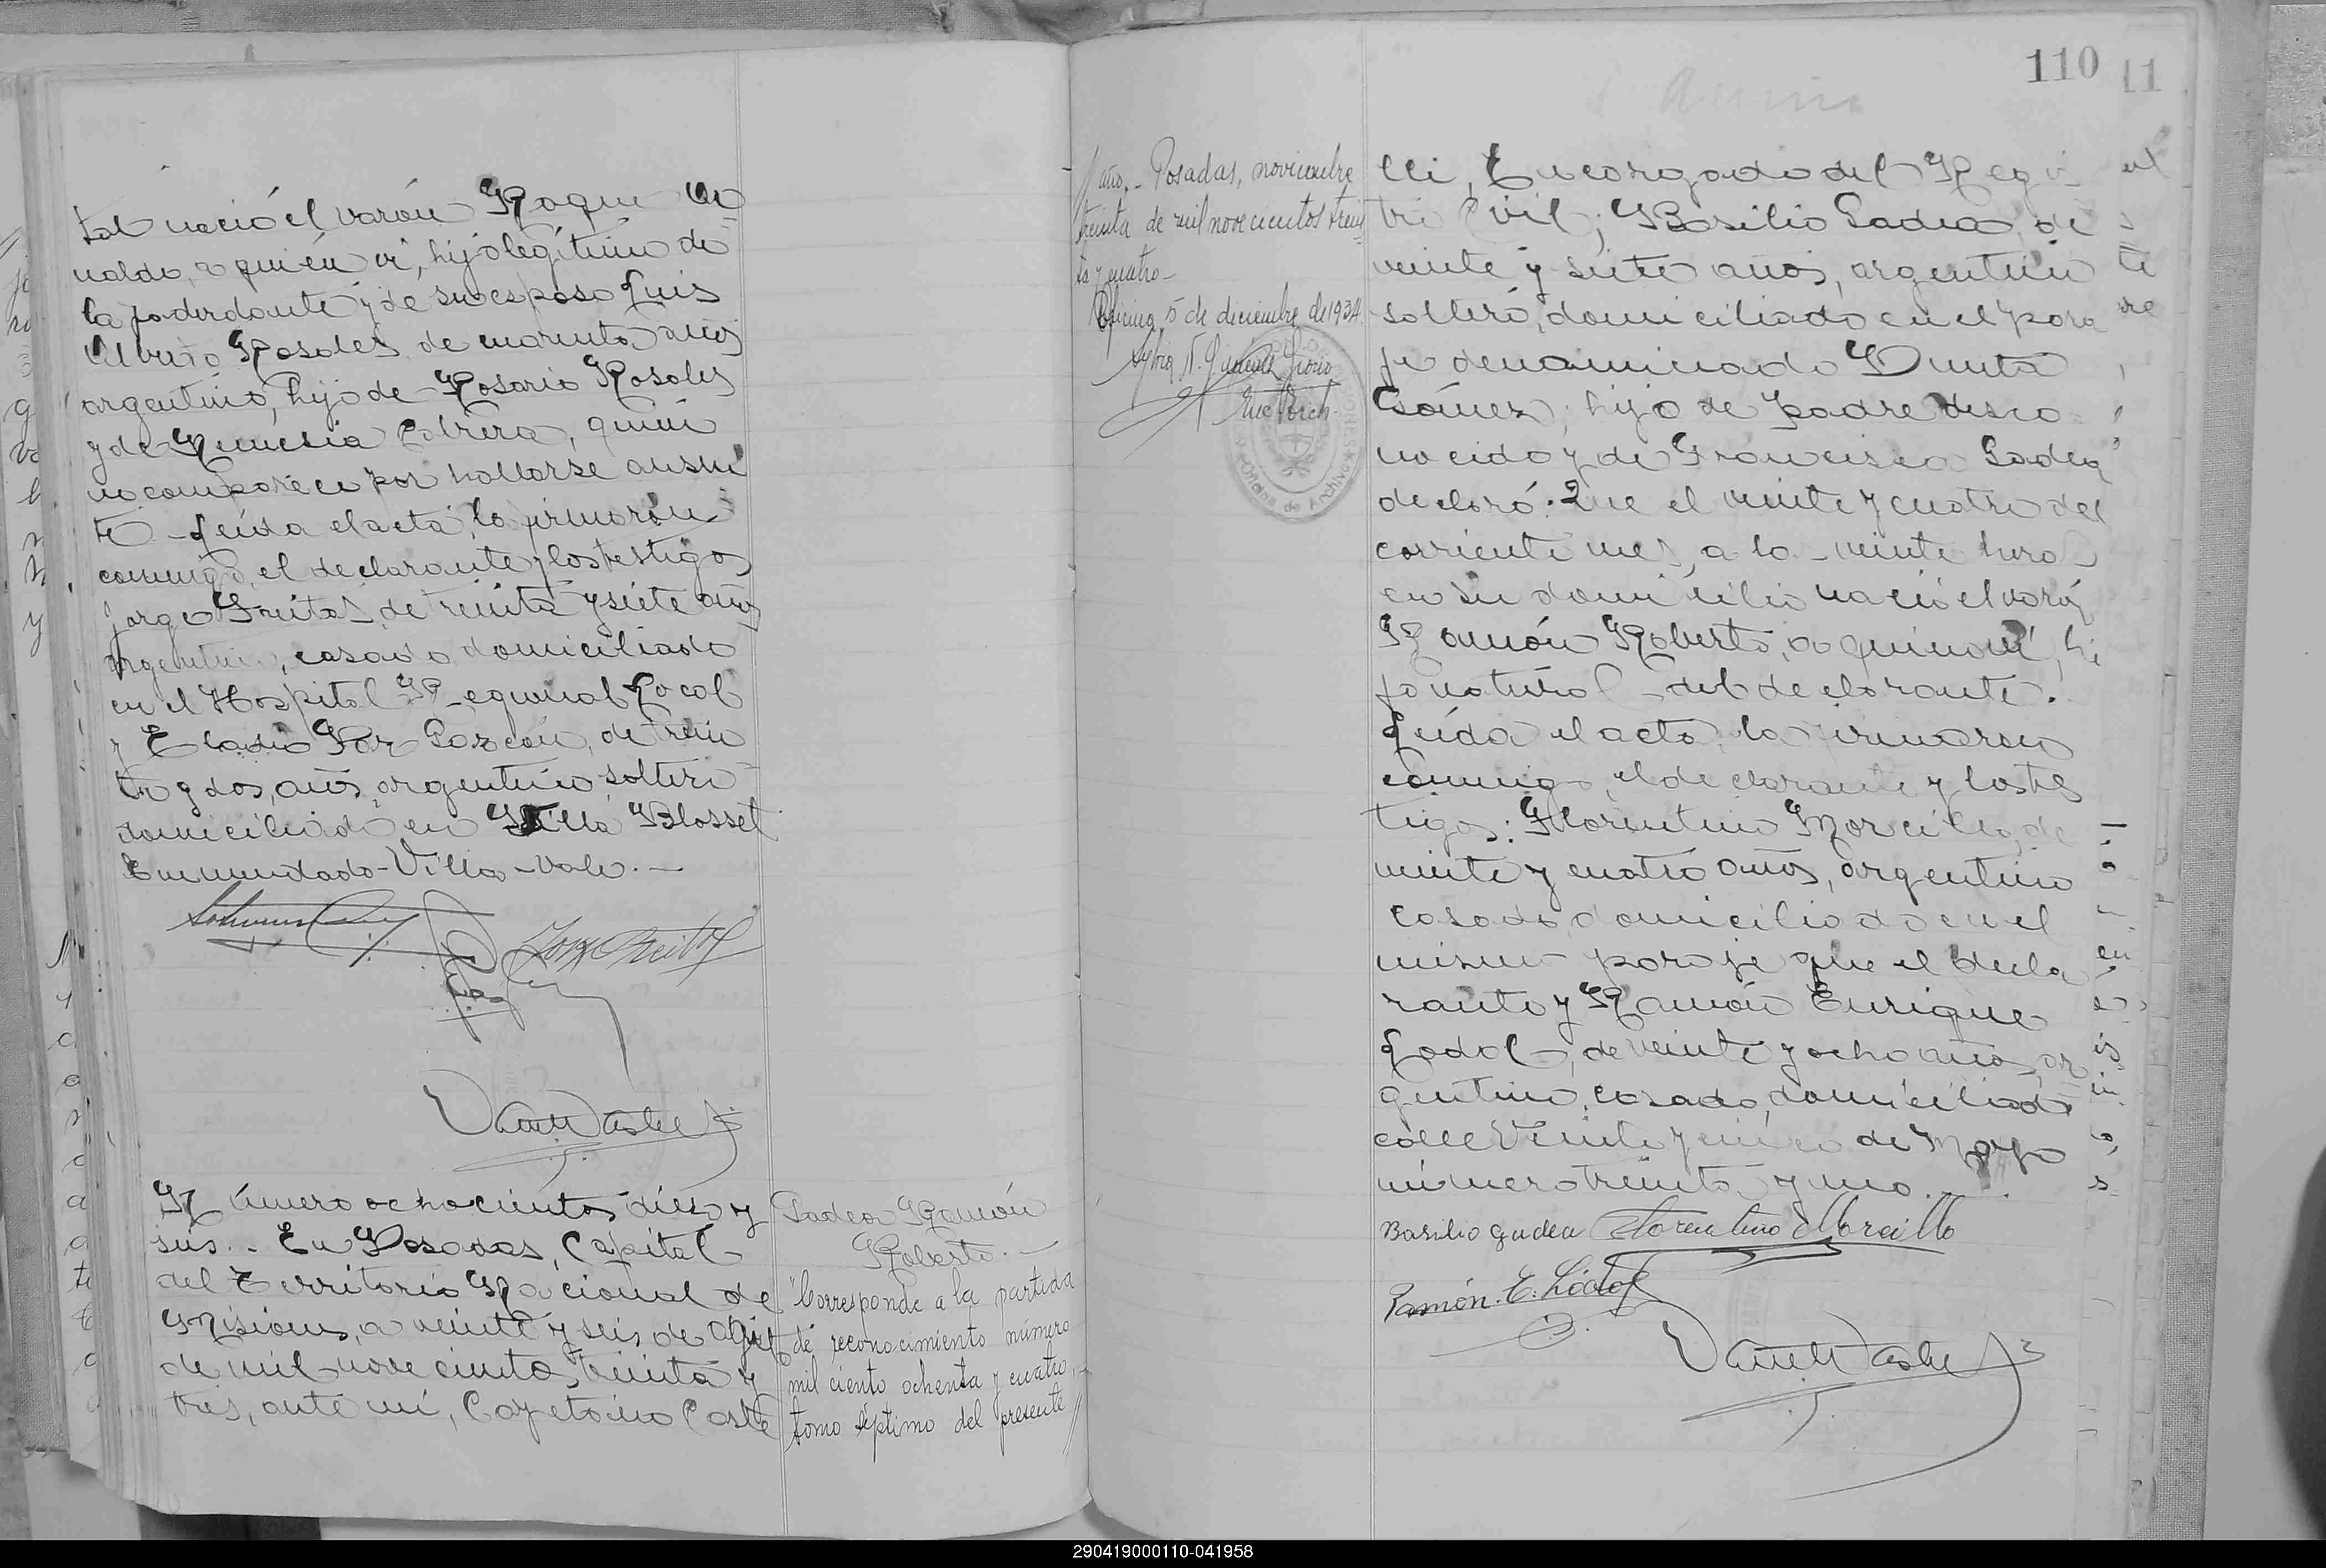 tal nació el varón Roque Ar
naldo, a quién ví, hijo legítimo de
la poderdante y de su esposo Luis
Alberto Rosales, de cuarenta años
argentino, hijo de Rosario Rosales
y de Nemesia Cabrera, quien
no comparece por hallarse ausen
te - Leída el acta, la firmaron
conmigo, el declarante y los testigos
Jorge Freitas, de treinta y siete años
argentino, casado domiciliado
en el Hospital Regional Local
y Eladio Paz de trein
ta y dos, años, argentino soltero
domiciliado en Villa Blosset
Enmendado - Villa - vale. -
Número ochocientos diez y
seis. - En Posadas, Capital
del Territorio Nacional de
Misiones, a veinte y seis de
de mil novecientos treinta y
tres, ante mí, Cayetano Caste
Gadea Ramón
Roberto. -
"Corresponde a la partida
de reconocimiento número
mil ciento ochenta y cuatro,
tomo séptimo del presente //
110
11
// año. - Posadas, noviembre
treinta de mil novecientos trein
ta y cuatro -
Oficina, 5 de diciembre de 1934.
Enc. Arch.
Oficina de Archivo
lli, Encargado del Regis
tro Civil; Basilio Gadea, de
veinte y siete años, argentino
soltero, domiciliado en el para
je denominado Punta
Gómez; hijo de padre desco
nocido y de Francisca Gadea
declaró: Que el veinte y cuatro del
corriente mes, a la veinte hora
en su domicilio nació el varón
Ramón Roberto, a quien ví, hi
jo natural del declarante.
Leída el acta, la firmaron
conmigo, el declarante y los tes
tigos: Florentino Morcillo, de
veinte y cuatro años, argentino
casado, domiciliado en el
mismo paraje que el decla
rante y Ramón Enrique
Lodol, de veinte y ocho años, ar
gentino, casado, domiciliado
calle Veinte y cinco de Mayo
número treinta y uno. -
Basilio Gadea Florentino Morcillo
Ramón. E. Lodol
290419000110-041958